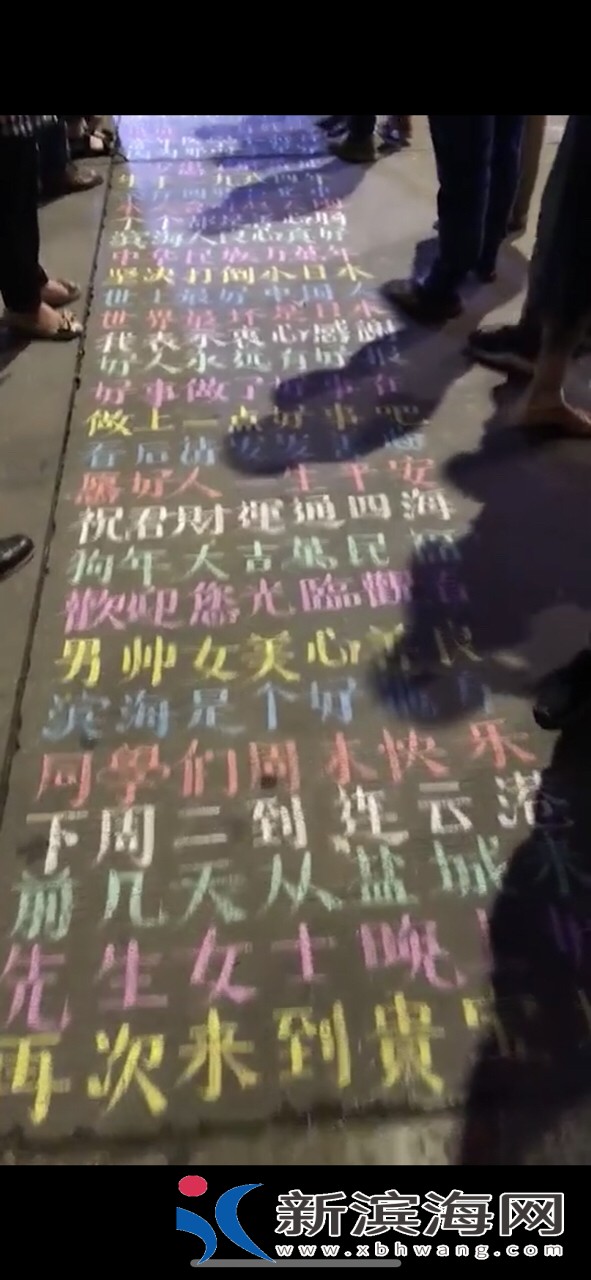 滨海人民心真好
中华民族万万年
坚决打倒小日本
世上最好中国人
世界最坏是日本
我表示衷心感謝
好人永远有好报
好事做了好事在
做上一点好事吧
在后请发发善
愿好人一生平安
祝君財運通四海
狗年大吉萬民福
歡迎您光臨觀看
男帅女美心善良
滨海是个好地方
同學们周末快乐
下周二到连云港
前几天从盐城来
先生女士晚上
再次来到贵宝
新滨海网
www.xbhwang.com